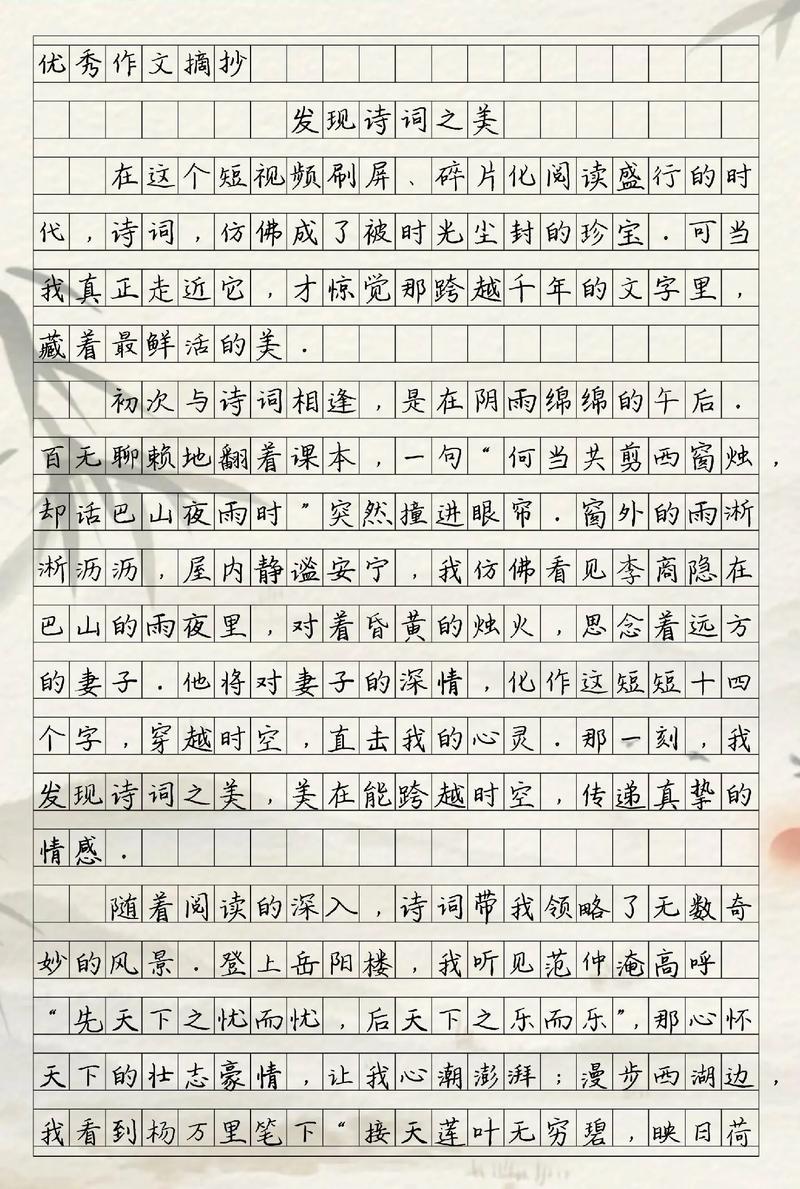 优秀作文摘抄
发现诗词之美
在这个短视频刷屏、碎片化阅读盛行的时
代，诗词，仿佛成了被时光尘封的珍宝．可当
我真正走近它，才惊觉那跨越千年的文字里，
藏着最鲜活的美．
初次与诗词相逢，是在阴雨绵绵的午后．
百无聊赖地翻着课本，一句“何当共剪西窗烛，
却话巴山夜雨时”突然撞进眼帘．窗外的雨淅
淅沥沥，屋内静谧安宁，我仿佛看见李商隐在
巴山的雨夜里，对着昏黄的烛火，思念着远方
的妻子．他将对妻子的深情，化作这短短十四
个字，穿越时空，直击我的心灵．那一刻，我
发现诗词之美，美在能跨越时空，传递真挚的
情感．
随着阅读的深入，诗词带我领略了无数奇
妙的风景．登上岳阳楼，我听见范仲淹高呼
“先天下之忧而忧，后天下之乐而乐”，那心怀
天下的壮志豪情，让我心潮澎湃；漫步西湖边，
我看到杨万里笔下“接天莲叶无穷碧，映日荷